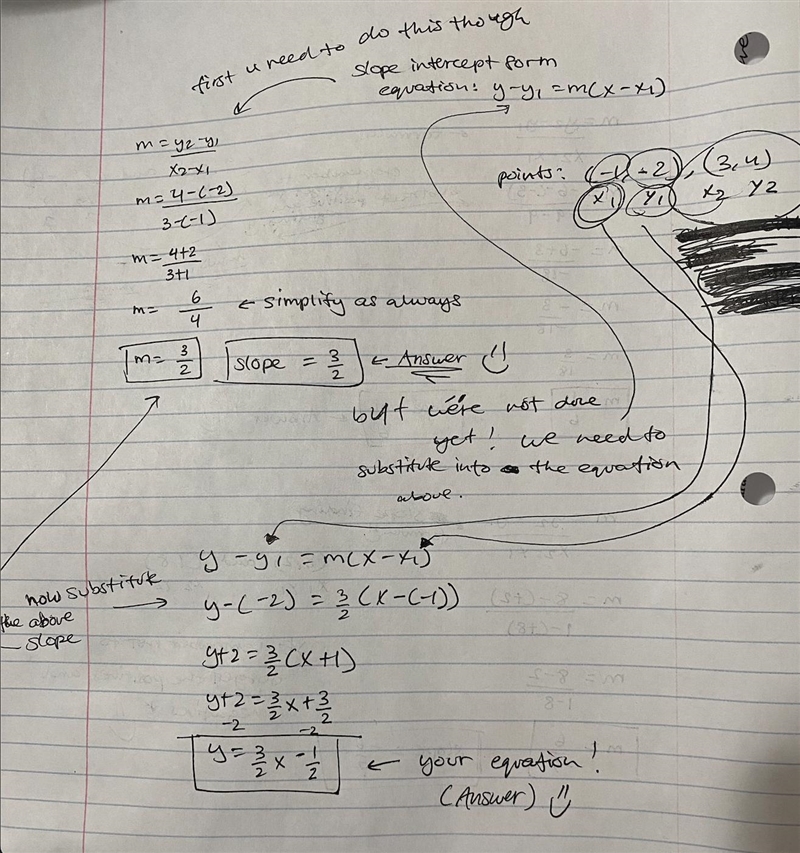 first u need to do this though
slope intercept form
equation: y-y₁ = m(x-x₁)
points: (-1, -2), (3,4)
x₁ y₁ x₂ y₂
m = y₂-y₁
x₂-x₁
m = 4-(-2)
3-(-1)
m = 4+2
3+1
m = 6
4
← simplify as always
m = 3/2
slope = 3/2 ← Answer
but we're not done
yet! we need to
substitute into the equation
above.
y - y₁ = m(x-x₁)
now substitute
the above
slope
y-(-2) = 3/2 (x-(-1))
y+2 = 3/2 (x+1)
y+2 = 3/2 x + 3/2
-2 -2
y = 3/2 x - 1/2
← your equation!
(Answer)